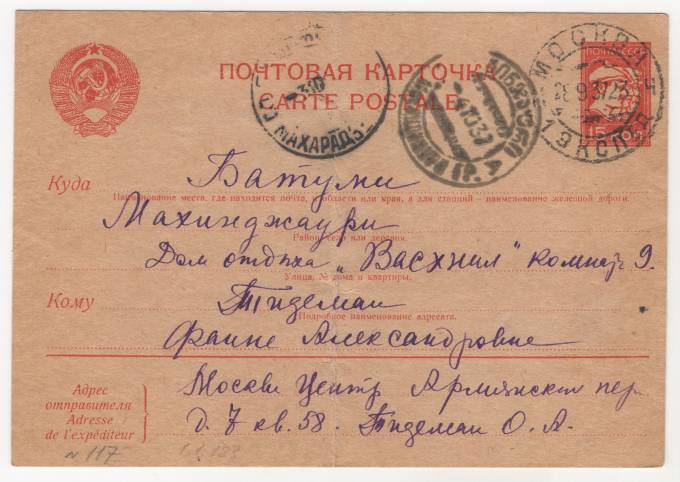 ПОЧТОВАЯ КАРТОЧКА
CARTE POSTALE
ПОЧТА СССР
МОСКВА
28 9 37 23
ЭКСП
МАХАРАДЗ
Куда
Батуми
Наименование места, где находится почта, и области или края, а для станций – наименование железной дороги.
Махинджаури
Район, село или деревня.
Дом отдыха „Васхнил" комнат 9.
Улица, № дома и квартиры.
Кому
Тидеман
Подробное наименование адресата.
Фаине Александровне
Адрес
отправителя
Adresse
de l'expéditeur
Москва Центр Армянский пер.
д. 7 кв. 58. Тидеман О. А.
N 117